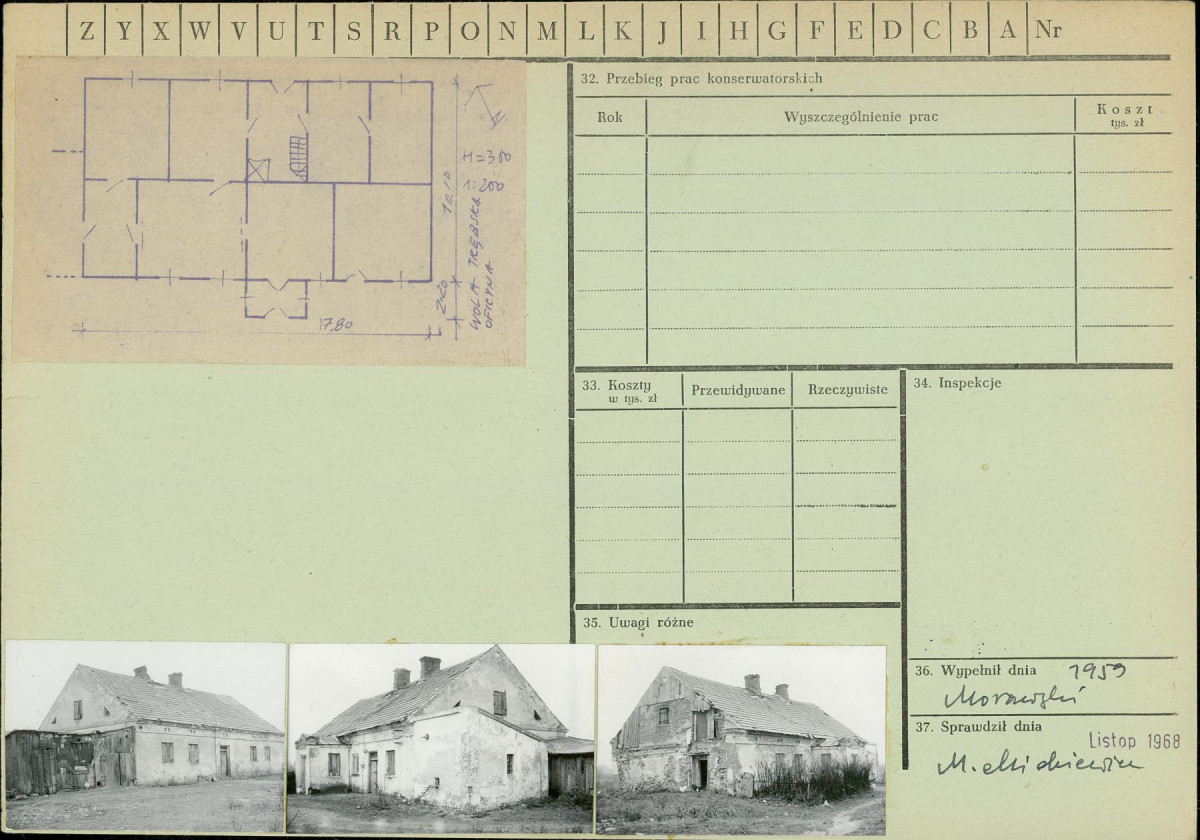 Z Y X W V U T S R P O N M L K J I H G F E D C B A Nr
H=300
1:200
10.10
2.20
17.80
WOLA TRĘBSKA
OFICYNA
32. Przebieg prac konserwatorskich
Rok Wyszczególnienie prac Koszt
tys. zł
33. Koszty Przewidywane Rzeczywiste
w tys. zł
34. Inspekcje
35. Uwagi różne
36. Wypełnił dnia 1959
37. Sprawdził dnia
Listop 1968